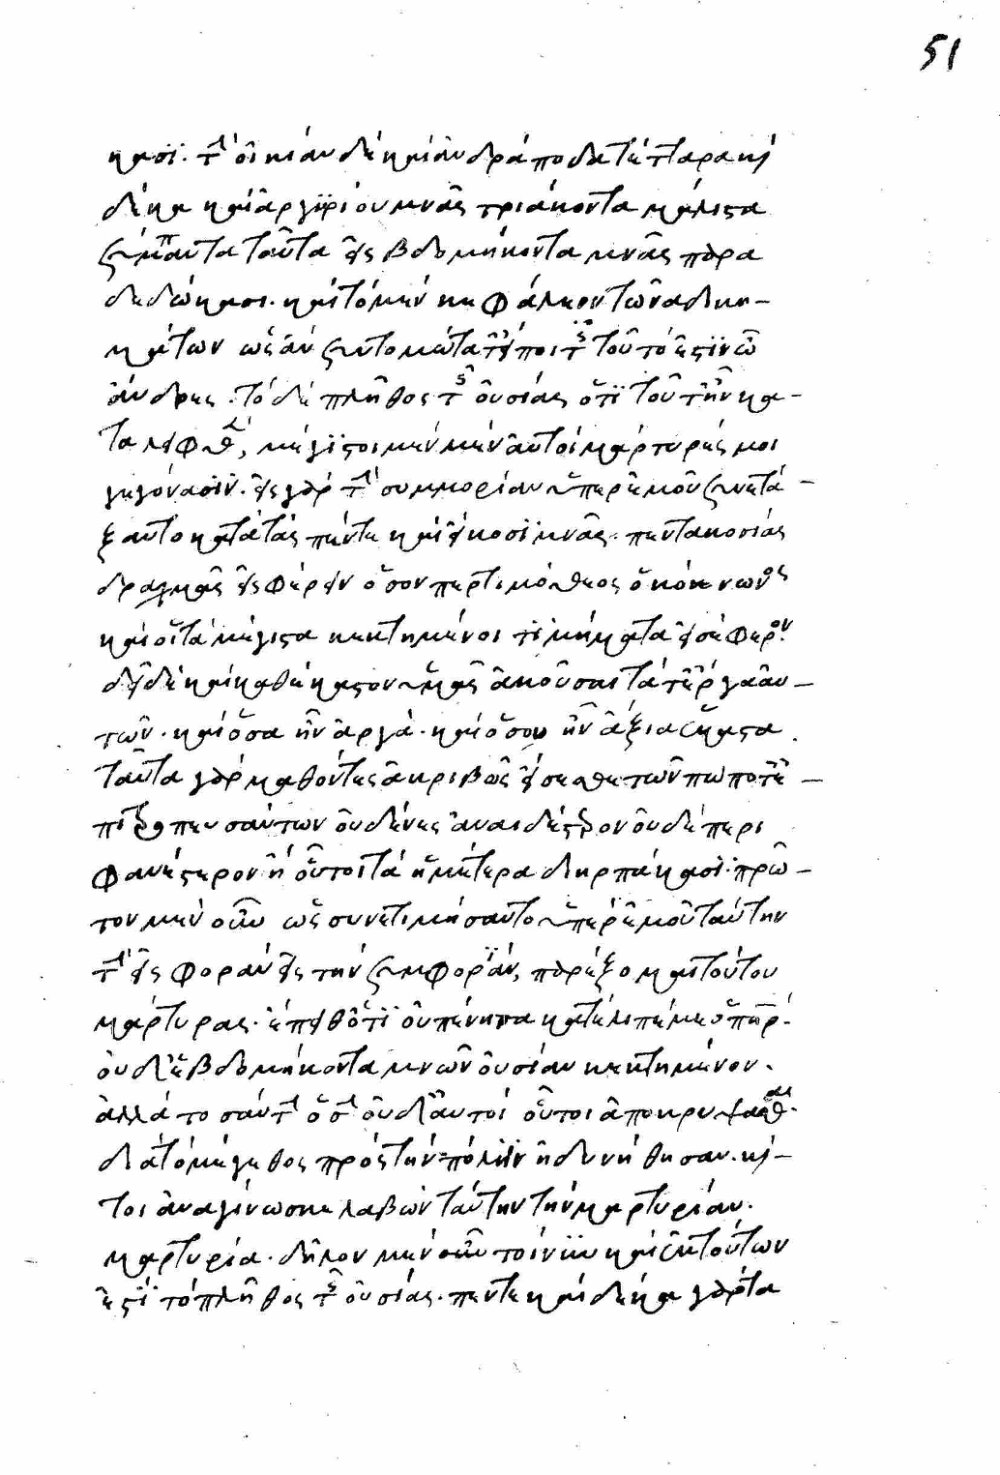 51
κασι· τὴν οἰκίαν δὲ καὶ ἀνδράποδα τέτταρα καὶ
δέκα καὶ ἀργυρίου μνᾶς τριάκοντα μάλιστα
σύμπαντα ταῦτα εἰς ἑβδομήκοντα μνᾶς παρα
δεδώκασι· καὶ τὸ μὲν κεφάλαιον τῶν ἀδικη-
μάτων ὡς ἂν συντομώτατ' εἴποι τις τοῦτό ἐστιν ὦ
ἄνδρες· τὸ δὲ πλῆθος τῆς οὐσίας ὅτι τοῦτ' ἦν κα-
ταλειφθὲν, μέγιστοι μὲν μὲν αὐτοὶ μάρτυρές μοι
γεγόνασιν· εἰς γὰρ τὴν συμμορίαν ὑπὲρ ἐμοῦ συνετά-
ξαντο κατὰ τὰς πέντε καὶ εἴκοσι μνᾶς· πεντακοσίας
δραχμὰς εἰσφέρειν ὅσον περ τιμόθεος ὁ κόνωνος
καὶ οἱ τὰ μέγιστα κεκτημένοι τιμήματα εἰσέφερον·
δεῖ δὲ καὶ καθ' ἕκαστον ὑμᾶς ἀκοῦσαι τά τ' ἐργὰ αὐ-
τῶν· καὶ ὅσα ἦν ἀργά· καὶ ὅσου ἦν ἄξια ἕκαστα
ταῦτα γὰρ μαθόντες ἀκριβῶς εἴσεσθε τῶν πώποτ' ἐ-
πιτροπευσάντων οὐδένες ἀναιδέστερον οὐδὲ περι
φανέστερον ἢ οὗτοι τὰ ἡμέτερα διηρπάκασι· πρῶ-
τον μὲν οὖν ὡς συνετιμήσαντο ὑπὲρ ἐμοῦ ταύτην
τὴν εἰσφορὰν εἰς τὴν συμμορίαν, παρέξομαι τούτου
μάρτυρας· ἔπειθ' ὅτι οὐ πένητα κατέλιπέ με ὁ πατήρ·
οὐδ' ἑβδομήκοντα μνῶν οὐσίαν κεκτημένον·
ἀλλὰ τοσαύτην ὅσην οὐδ' αὐτοὶ οὗτοι ἀποκρύψασθαι·
διὰ τὸ μέγεθος πρὸς τὴν πόλιν ἠδυνήθησαν· καί-
τοι ἀναγίνωσκε λαβὼν ταύτην τὴν μαρτυρίαν·
μαρτυρία· δῆλον μὲν οὖν τοίνυν καὶ ἐκ τούτων
ἐστὶ τὸ πλῆθος τῆς οὐσίας· πεντεκαίδεκα γὰρ τα